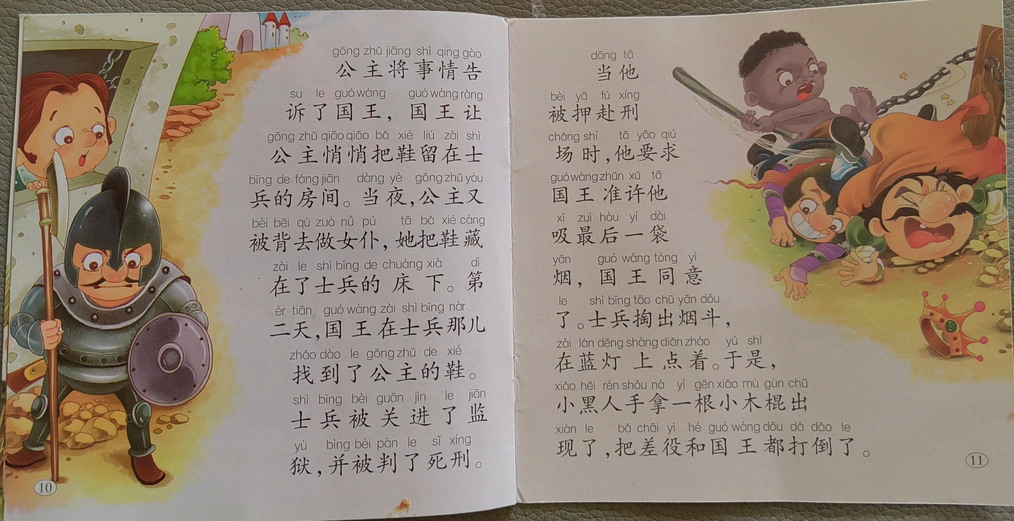 gōng zhǔ jiāng shì qing gào
公主将事情告
su le guó wáng guó wáng ràng
诉了国王，国王让
gōng zhǔ qiāo qiāo bǎ xié liú zài shì
公主悄悄把鞋留在士
bīng de fáng jiān dàng yè gōng zhǔ yòu
兵的房间。当夜，公主又
bèi bēi qù zuò nǚ pú tā bǎ xié cáng
被背去做女仆，她把鞋藏
zài le shì bīng de chuáng xià dì
在了士兵的床下。第
èr tiān guó wáng zài shì bīng nàr
二天，国王在士兵那儿
zhǎo dào le gōng zhǔ de xié
找到了公主的鞋。
shì bīng bèi guān jìn le jiān
士兵被关进了监
yù bìng bèi pàn le sǐ xíng
狱，并被判了死刑。
10
dāng tā
当他
bèi yā fù xíng
被押赴刑
chǎng shí tā yāo qiú
场时，他要求
guó wáng zhǔn xǔ tā
国王准许他
xī zuì hòu yí dài
吸最后一袋
yān guó wáng tóng yì
烟，国王同意
le shì bīng tāo chū yān dǒu
了。士兵掏出烟斗，
zài lán dēng shàng diǎn zháo yú shì
在蓝灯上点着。于是，
xiǎo hēi rén shǒu ná yì gēn xiǎo mù gùn chū
小黑人手拿一根小木棍出
xiàn le bǎ chāi yì hé guó wáng dōu dǎ dǎo le
现了，把差役和国王都打倒了。
11